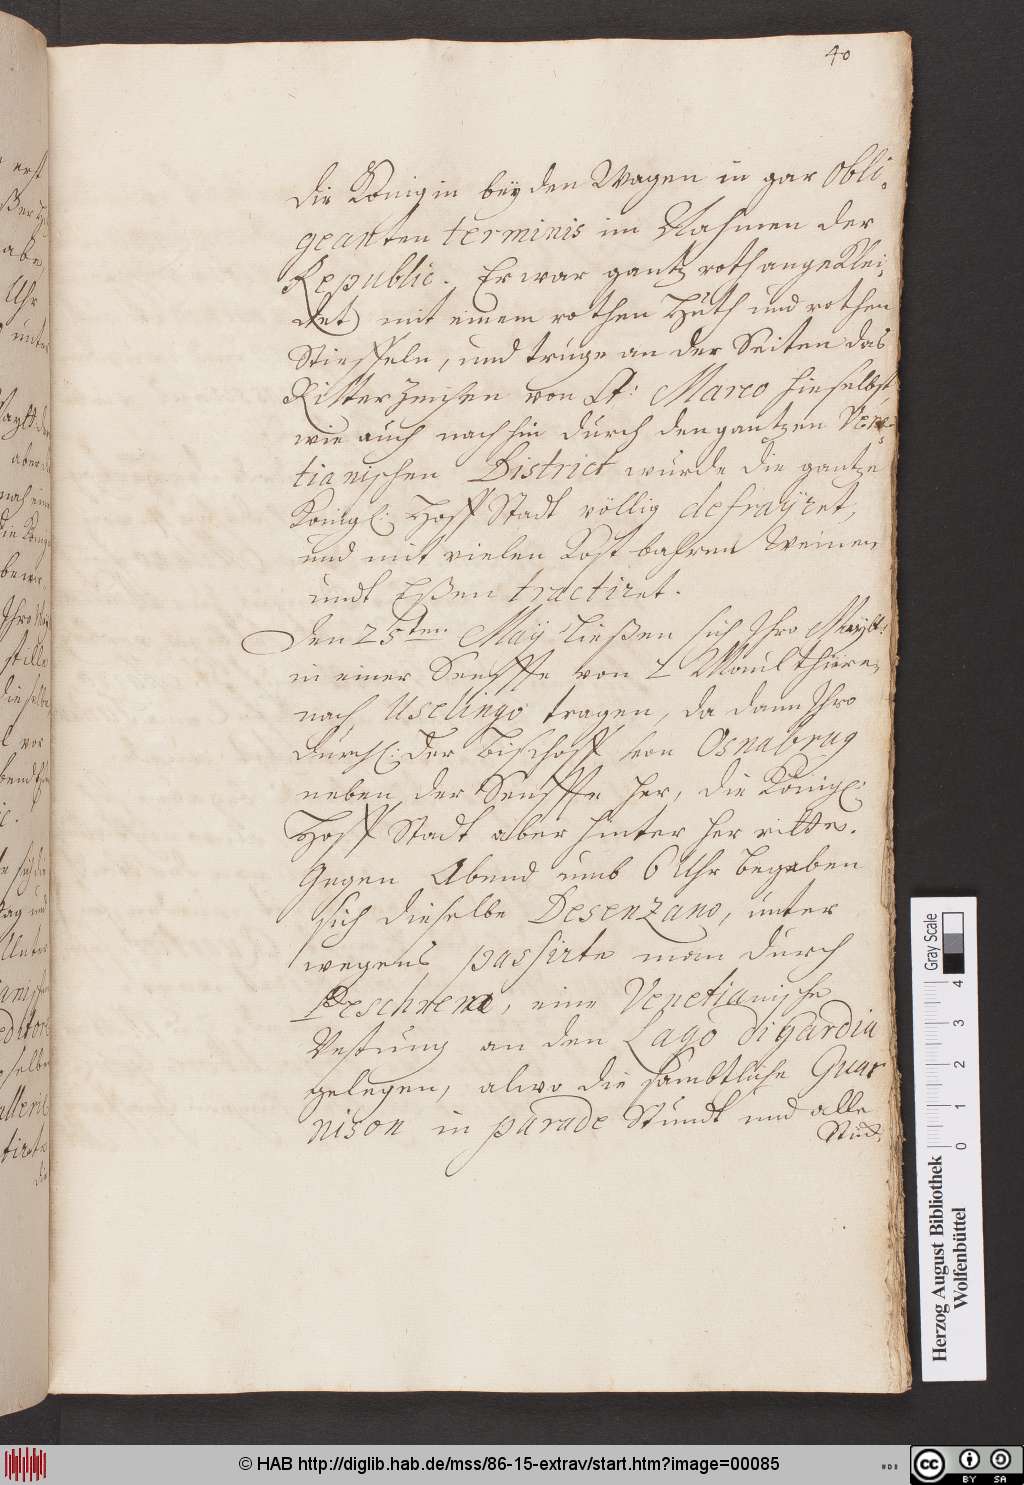 40
die Königin bey den Wagen in gar obli-
geanten terminis im Nahmen der
Republic. Er war gantz roth angeklei-
det mit einem rothen Huth und rothen
Stieffeln, und truge an der Seiten das
Ritter Zeichen von St: Marco hieselbst
wie auch nach hin durch den gantzen Vene-
tianischen District wurde die gantze
Königl: Hoff Stadt völlig defrayret,
und mit vielen Kost bahren Weinen
undt Eßen tractiret.
Den 25ten May ließen sich Ihro Maytt:
in einer Senffte von 2 Maulthieren
nach Uselingo tragen, da dann Ihro
Durchl: der Bischoff von Osnabrug
neben der Senffte her, die Königl:
Hoff Stadt aber hinter her ritte.
Gegen Abend umb 6 Uhr begaben
sich dieselbe Desenzano, unter
wegens passirte man durch
Peschiera, eine Venetianische
Vestung an den Lago di Gardia
gelegen, alwo die sämbtliche Guar
nison in parade Stundt und alle
Stück
Gray Scale
0 1 2 3 4
Herzog August Bibliothek
Wolfenbüttel
© HAB http://diglib.hab.de/mss/86-15-extrav/start.htm?image=00085
cc BY SA